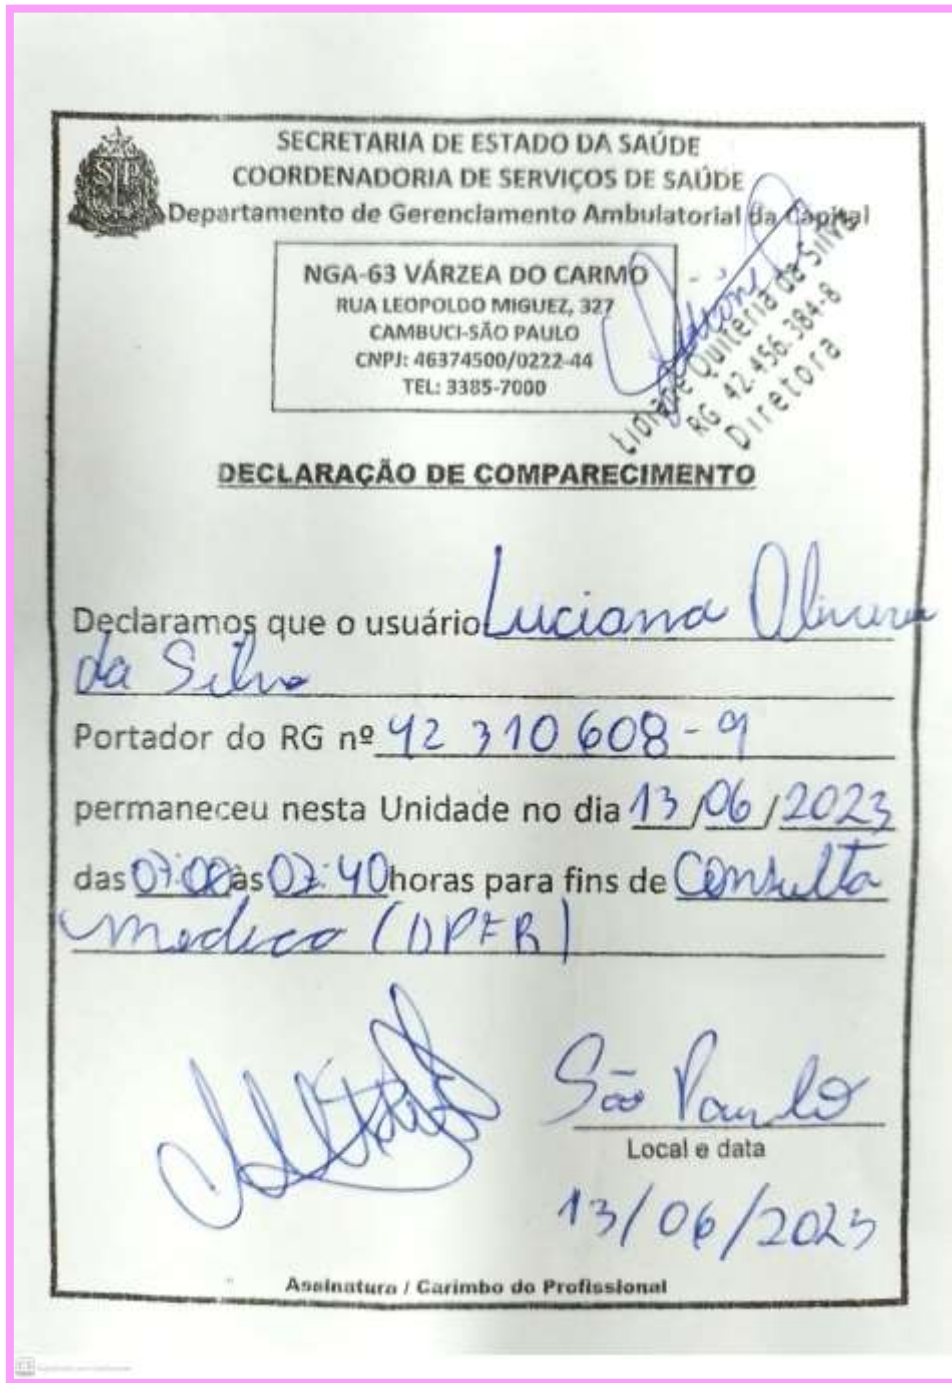 SECRETARIA DE ESTADO DA SAÚDE
COORDENADORIA DE SERVIÇOS DE SAÚDE
Departamento de Gerenciamento Ambulatorial da Capital
NGA-63 VÁRZEA DO CARMO
RUA LEOPOLDO MIGUEZ, 327
CAMBUCI-SÃO PAULO
CNPJ: 46374500/0222-44
TEL: 3385-7000
Quitéria da Silva
RG 42.456.384-8
Diretora
DECLARAÇÃO DE COMPARECIMENTO
Declaramos que o usuário Luciana Oliveira
da Silva
Portador do RG nº 42 310 608-9
permaneceu nesta Unidade no dia 13/06/2023
das 07:00 às 07:40 horas para fins de Consulta
medica
São Paulo
Local e data
13/06/2023
Assinatura / Carimbo do Profissional